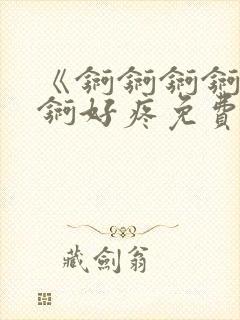 《锕锕锕锕
锕好疼免費
藏劍翁